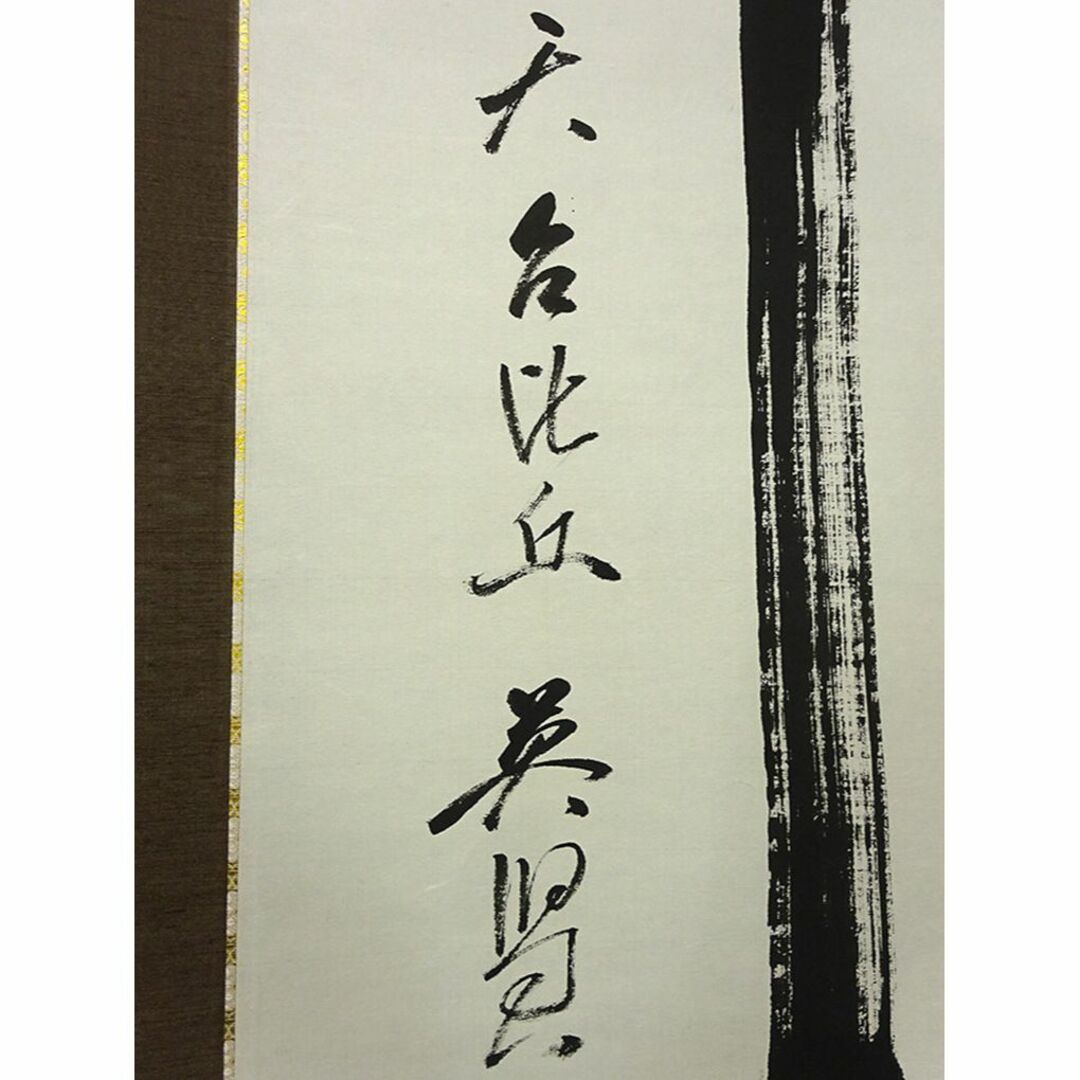 天台比丘 英賢